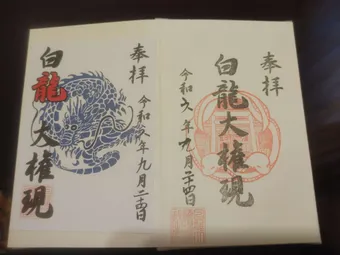 奉拝
白龍大権現
令和六年九月二十四日
奉拝
白龍大権現
令和六年九月二十四日